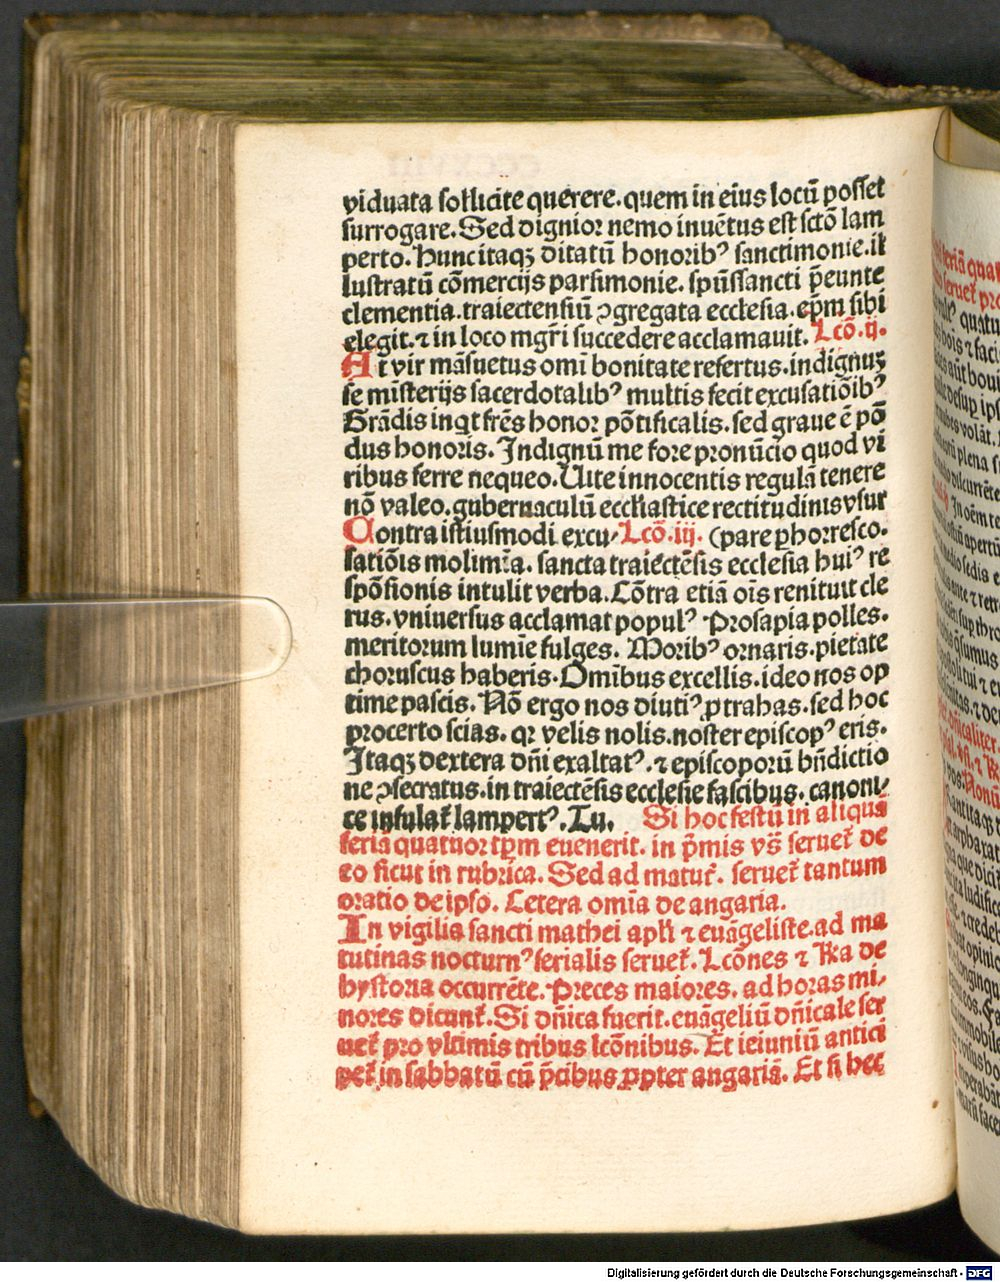 viduata sollicite querere. quem in eiꝰ locū posset
surrogare. Sed dignior nemo inuētus est sctō lam
perto. Hunc itaqꝫ ditatū honoribꝰ sanctimonie. il
lustratū cōmercijs parsimonie. spūssancti p̄eunte
clementia. traiectensiū ꝯgregata ecclesia. ep̄m sibi
elegit. ⁊ in loco mgr̄i succedere acclamauit. Lcō. ij.
At vir māsuetus omī bonitate refertus. indignuꝫ
se misterijs sacerdotalibꝰ multis fecit excusatiōibꝰ
Grādis inqt frēs honor pōtificalis. sed graue ē pō
dus honoris. Indignū me fore pronūcio quod vi
ribus ferre nequeo. Uite innocentis regulā tenere
nō valeo. gubernaculū eccliastice rectitudinis vsur
Contra istiusmodi excu⸗ Lcō. iij. (pare ꝑhorresco.
satiōis molimīa. sancta traiectēsis ecclesia huiꝰ re
spōsionis intulit verba. Cōtra etiā oīs renituit cle
rus. vniuersus acclamat populꝰ Prosapia polles.
meritorum lumīe fulges. Moribꝰ ornaris. pietate
choruscus haberis. Omībus excellis. ideo nos op
time pascis. Nō ergo nos diutiꝰ ꝓtrahas. sed hoc
procerto scias. qꝛ velis nolis. noster episcopꝰ eris.
Itaqꝫ dextera dn̄i exaltatꝰ. ⁊ episcoporū bn̄dictio
ne ꝯsecratus. in traiectēsis ecclesie fascibus. canoni⸗
ce infulat̄ lampertꝰ. Tu. Si hoc festū in aliqua
feria quatuor tp̄m euenerit. in p̄mis vs̄ seruet̄ de
eo sicut in rubrica. Sed ad matut̄. seruet̄ tantum
oratio de ipso. Cetera omīa de angaria.
In vigilia sancti mathei apl̄i ⁊ euāgeliste. ad ma
tutinas nocturnꝰ ferialis seruet̄. Lcōnes ⁊ R̄ia de
hystoria occurrēte. Preces maiores. ad horas mi⸗
nores dicunt̄. Si dn̄ica fuerit. euāgeliū dn̄icale ser
uet̄ pro vltimis tribus lcōnibus. Et ieiuniū antici
pet̄ in sabbatū cū p̄cibus ꝓpter angariā. Et si hec
Digitalisierung gefördert durch die Deutsche Forschungsgemeinschaft - DFG